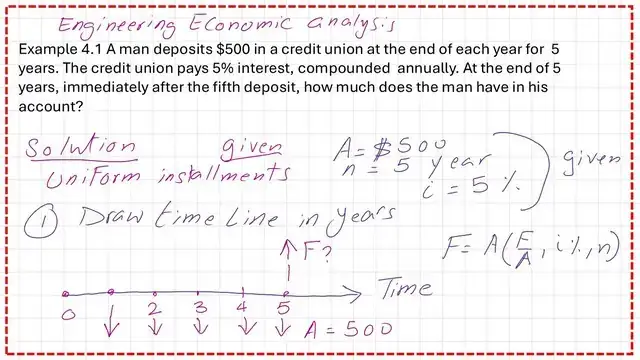 Engineering Economic analysis
Example 4.1 A man deposits $500 in a credit union at the end of each year for 5
years. The credit union pays 5% interest, compounded annually. At the end of 5
years, immediately after the fifth deposit, how much does the man have in his
account?
Solution given A = $500
Uniform installments n = 5 year given
i = 5 %
① Draw time Line in years
F? F = A(F/A, i%, n)
Time
0 2 3 4 5
A = 500